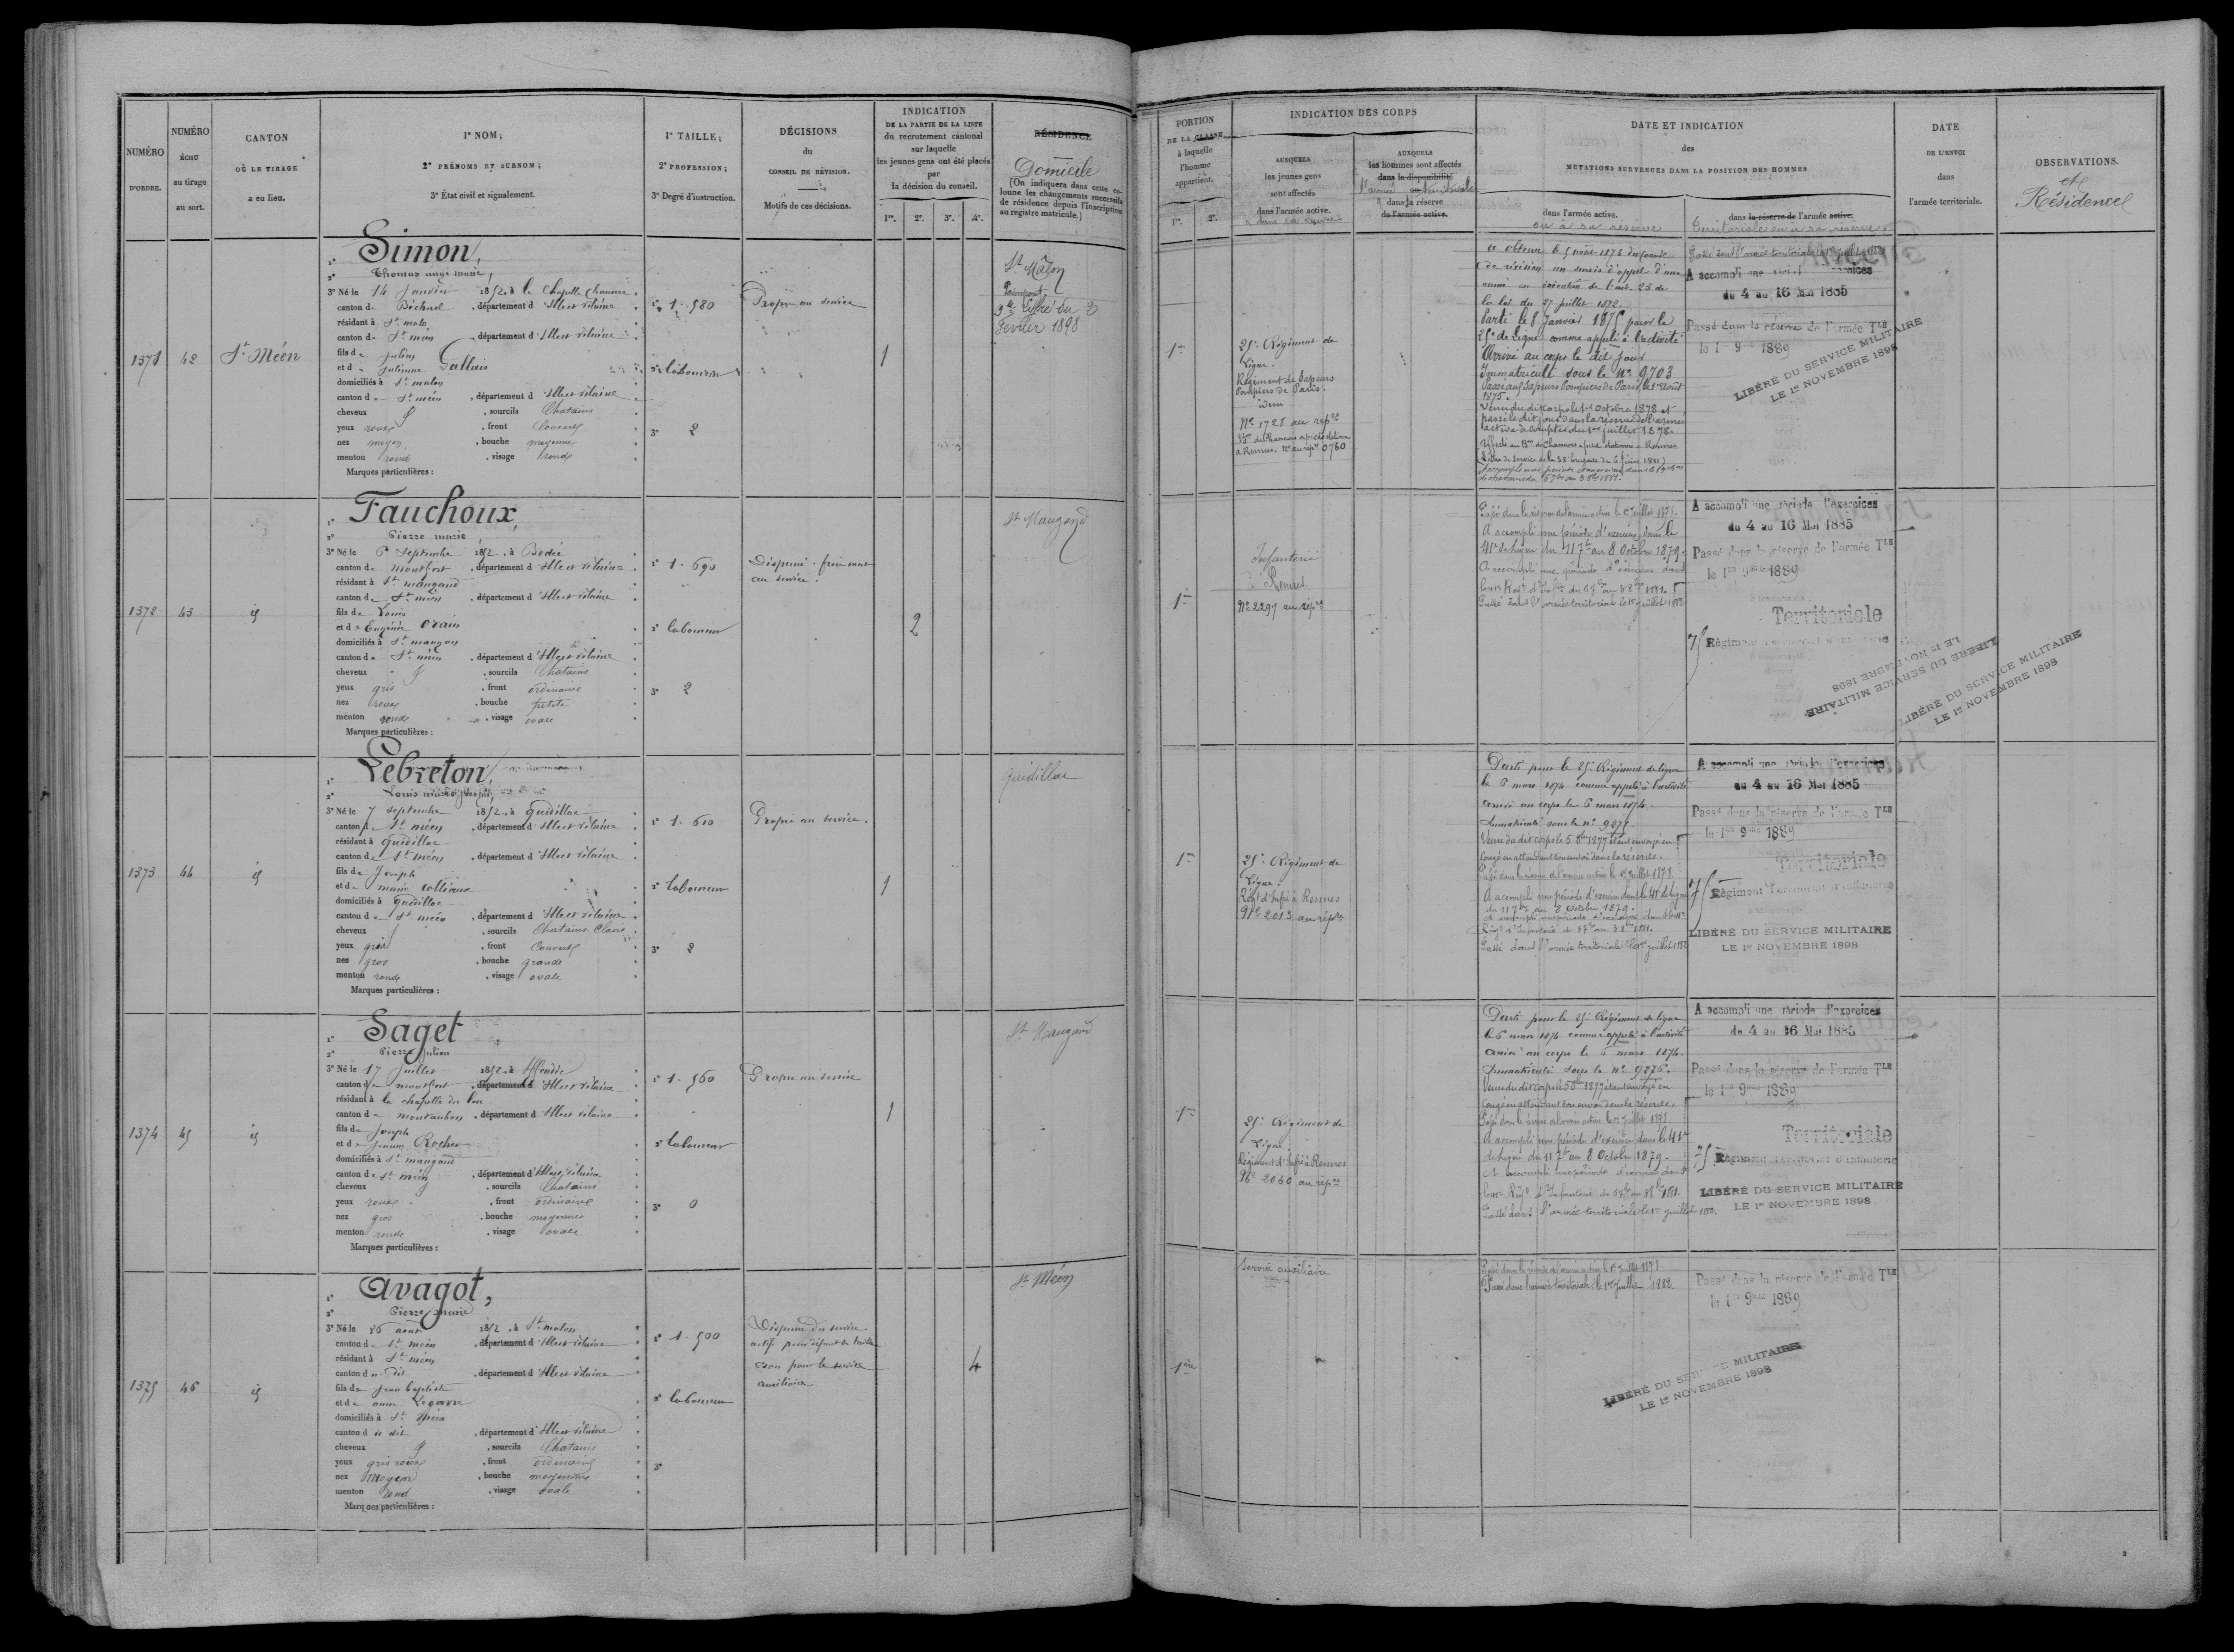 NUMÉRO
D'ORDRE.
NUMÉRO
ÉCHU
au tirage
au sort.
CANTON
OÙ LE TIRAGE
a eu lieu.
1° NOM;
2° PRÉNOMS ET SURNOM;
3° État civil et signalement.
1° TAILLE;
2° PROFESSION;
3° Degré d'instruction.
DÉCISIONS
du
CONSEIL DE RÉVISION.
Motifs de ces décisions.
INDICATION
DE LA PARTIE DE LA LISTE
du recrutement cantonal
sur laquelle
les jeunes gens ont été placés
par
la décision du conseil.
1re. 2e. 3e. 4e.
RÉSIDENCE
Domicile
(On indiquera dans cette co-
lonne les changements successifs
de résidence depuis l'inscription
au registre matricule.)
1371
42
St Méen
1° Simon,
2° Thomas ange marie,
3° Né le 14 Janvier 1852, à la Chapelle Chaussée
canton de Bécherel, département d'Ille et vilaine
résidant à St malo
canton de St méen, département d'Ille et vilaine
fils de Julien
et de Julienne Gallais
domiciliés à St malon
canton de St méen, département d'Ille et vilaine
cheveux, sourcils Chatains
yeux roux, front Couvert
nez moyen, bouche moyenne
menton rond, visage rond
Marques particulières :
1° 1.580
2° laboureur
3° 2
Propre au service
1
St Malon
Paimpont
Février 1898
1372
43
id
1° Fauchoux,
2° Pierre marie
3° Né le 6 Septembre 1852, à Bedée
canton de montfort, département d'Ille et vilaine
résidant à St maugand
canton de St méen, département d'Ille et vilaine
fils de Louis
et de Eugénie Orain
domiciliés à St maugan
canton de St méen, département d'Ille et vilaine
cheveux, sourcils Chatains
yeux gris, front ordinaire
nez, bouche petite
menton rond, visage ovale
Marques particulières :
1° 1.690
2° laboureur
3° 2
Dispensé. frère mort
au service.
2
St Maugand
1373
44
id
1° Lebreton,
2° Louis marie Joseph
3° Né le 7 septembre 1852, à quedillac
canton de St méen, département d'Ille et vilaine
résidant à Quedillac
canton de St méen, département d'Ille et vilaine
fils de Joseph
et de marie colleaux
domiciliés à Quedillac
canton de St méen, département d'Ille et vilaine
cheveux, sourcils Chatains Clairs
yeux gris, front Couvert
nez gros, bouche grande
menton rond, visage ovale
Marques particulières :
1° 1.610
2° laboureur
3° 2
Propre au service.
1
Quédillac
1374
45
id
1° Saget
2° Pierre Julien
3° Né le 17 Juillet 1852, à Iffendic
canton de montfort, département d'Ille et vilaine
résidant à la chapelle du lou
canton de montauban, département d'Ille et vilaine
fils de Joseph
et de Jeanne Rocher
domiciliés à St maugand
canton de St méen, département d'Ille et vilaine
cheveux, sourcils Chatains
yeux roux, front ordinaire
nez gros, bouche moyenne
menton rond, visage ovale
Marques particulières :
1° 1.560
2° laboureur
3° 0
Propre au service
1
St Maugand
1375
46
id
1° Avagot,
2° Pierre Marie
3° Né le 16 août 1852, à St malon
canton de St méen, département d'Ille et vilaine
résidant à St méen
canton du dit, département d'Ille et vilaine
fils de Jean baptiste
et de anne
domiciliés à St Méen
canton du dit, département d'Ille et vilaine
cheveux, sourcils Chatains
yeux gris roux, front ordinaire
nez moyen, bouche moyenne
menton rond, visage ovale
Marques particulières :
1° 1.500
2° laboureur
3°
Dispensé du service
actif pour défaut de taille
bon pour le service
auxiliaire
4
St Méen
PORTION
DE LA CLASSE
à laquelle
l'homme
appartient.
1re. 2e.
INDICATION DES CORPS
AUXQUELS
les jeunes gens
sont affectés
dans l'armée active.
AUXQUELS
les hommes sont affectés
dans la disponibilité
ou
dans la réserve
de l'armée active.
DATE ET INDICATION
des
MUTATIONS SURVENUES DANS LA POSITION DES HOMMES
dans l'armée active.
ou à sa réserve
dans la réserve de l'armée active.
territoriale ou à sa réserve
DATE
DE L'ENVOI
dans
l'armée territoriale.
OBSERVATIONS.
et
Résidences
1re
25e Régiment de
Ligne.
Régiment de Sapeurs
Pompiers de Paris.
idem
No 1728 au répre
a obtenu le 5 août 1873 du Conseil
de révision un sursis d'appel d'une
année en exécution de l'art. 23 de
la loi du 27 juillet 1872.
Parti le 8 Janvier 1875 pour le
25e de Ligne comme appelé à l'activité
Arrivé au corps le dit jour
Immatriculé sous le No 9703
Passé aux Sapeurs Pompiers de Paris le 1er Août
1875.
A accompli une période d'exercices
du 4 au 16 Mai 1885
Passé dans la réserve de l'armée Tle
le 1er 9bre 1889
LIBÉRÉ DU SERVICE MILITAIRE
LE 1er NOVEMBRE 1898
1re
Infanterie
à Rennes
No 2297 au répre
Passé dans la réserve de l'armée active le 1er juillet 1878.
A accompli une période d'exercices dans le
41e de ligne du 11 7bre au 8 Octobre 1879.
Passé dans l'armée territoriale le 1er juillet 1882
A accompli une période d'exercices
du 4 au 16 Mai 1885
Passé dans la réserve de l'armée Tle
le 1er 9bre 1889
Territoriale
75 Régiment territorial d'infanterie
LIBÉRÉ DU SERVICE MILITAIRE
LE 1er NOVEMBRE 1898
LIBÉRÉ DU SERVICE MILITAIRE
LE 1er NOVEMBRE 1898
1re
25e Régiment de
Ligne.
Régt d'Infie à Rennes
No 2013 au répre
Parti pour le 25e Régiment de ligne
le 6 mars 1874 comme appelé à l'activité
arrivé au corps le 6 mars 1874.
Immatriculé sous le no 9277.
Congé en attendant son envoi dans la réserve.
Passé dans la réserve de l'armée active le 1er juillet 1878
A accompli une période d'exercices dans le 41e de ligne
du 11 7bre au 8 Octobre 1879.
Passé dans l'armée territoriale le 1er juillet 1882
A accompli une période d'exercices
du 4 au 16 Mai 1885
Passé dans la réserve de l'armée Tle
le 1er 9bre 1889
Territoriale
75 Régiment territorial d'infanterie
LIBÉRÉ DU SERVICE MILITAIRE
LE 1er NOVEMBRE 1898
1re
25e Régiment de
Ligne
Régiment d'Infie à Rennes
No 2060 au répre
Parti pour le 25e Régiment de ligne
le 6 mars 1874 comme appelé à l'activité
arrivé au corps le 6 mars 1874.
Immatriculé sous le no 9276.
Congé en attendant son envoi dans la réserve.
Passé dans la réserve de l'armée active le 1er juillet 1878
A accompli une période d'exercices dans le 41e
de ligne du 11 7bre au 8 Octobre 1879.
Passé dans l'armée territoriale le 1er juillet
A accompli une période d'exercices
du 4 au 16 Mai 1885
Passé dans la réserve de l'armée Tle
le 1er 9bre 1889
Territoriale
75 Régiment territorial d'infanterie
LIBÉRÉ DU SERVICE MILITAIRE
LE 1er NOVEMBRE 1898
1ère
Service auxiliaire
Passé dans la réserve de l'armée active le 1er juillet 1878
Passé dans l'armée territoriale le 1er juillet 1882
Passé dans la réserve de l'armée Tle
le 1er 9bre 1889
LIBÉRÉ DU SERVICE MILITAIRE
LE 1er NOVEMBRE 1898